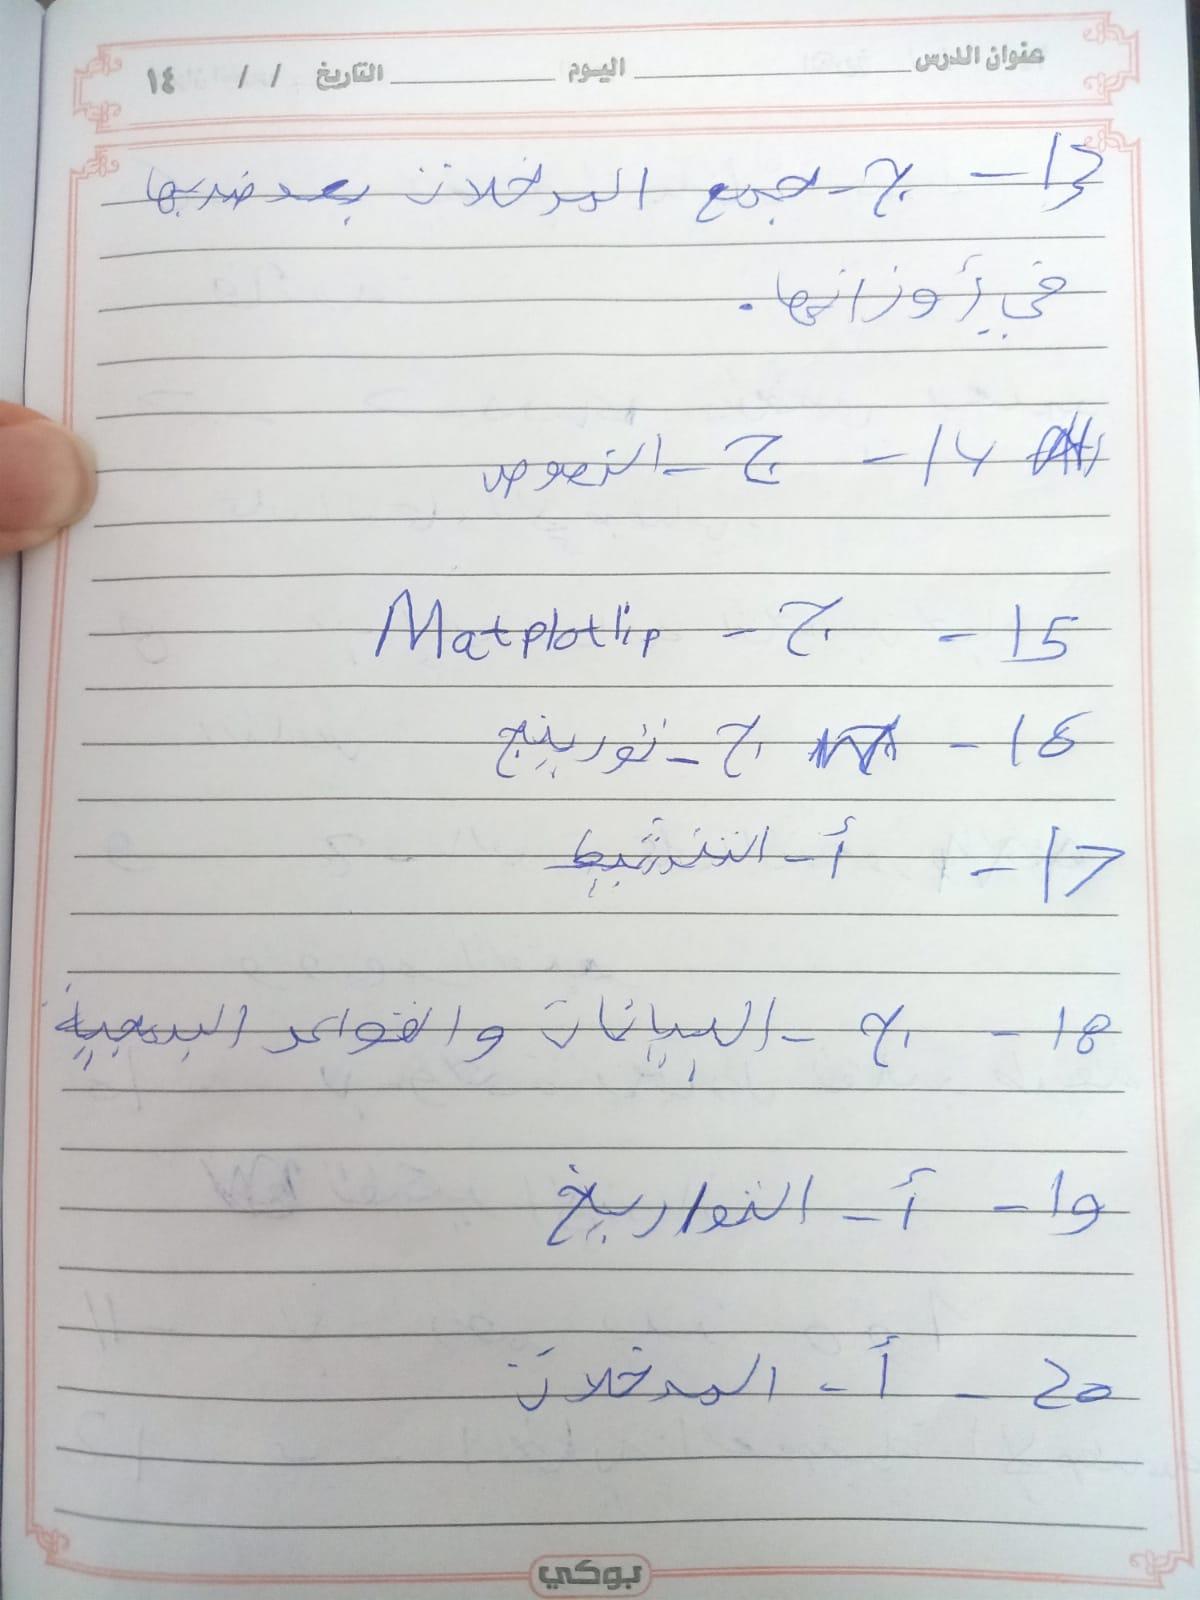 عنوان الدرس اليوم التاريخ / / ١٤
13 - ج - جمع المدخلات بعد ضربها
في أوزانها.
14 - ج - النصوص
15 - ج - Matplotlip
16 - ج - تورينج
17 - أ - التنشيط
18 - ج - البيانات والقواعد البرمجية
19 - أ - التواريخ
20 - أ - المدخلات
بوكي